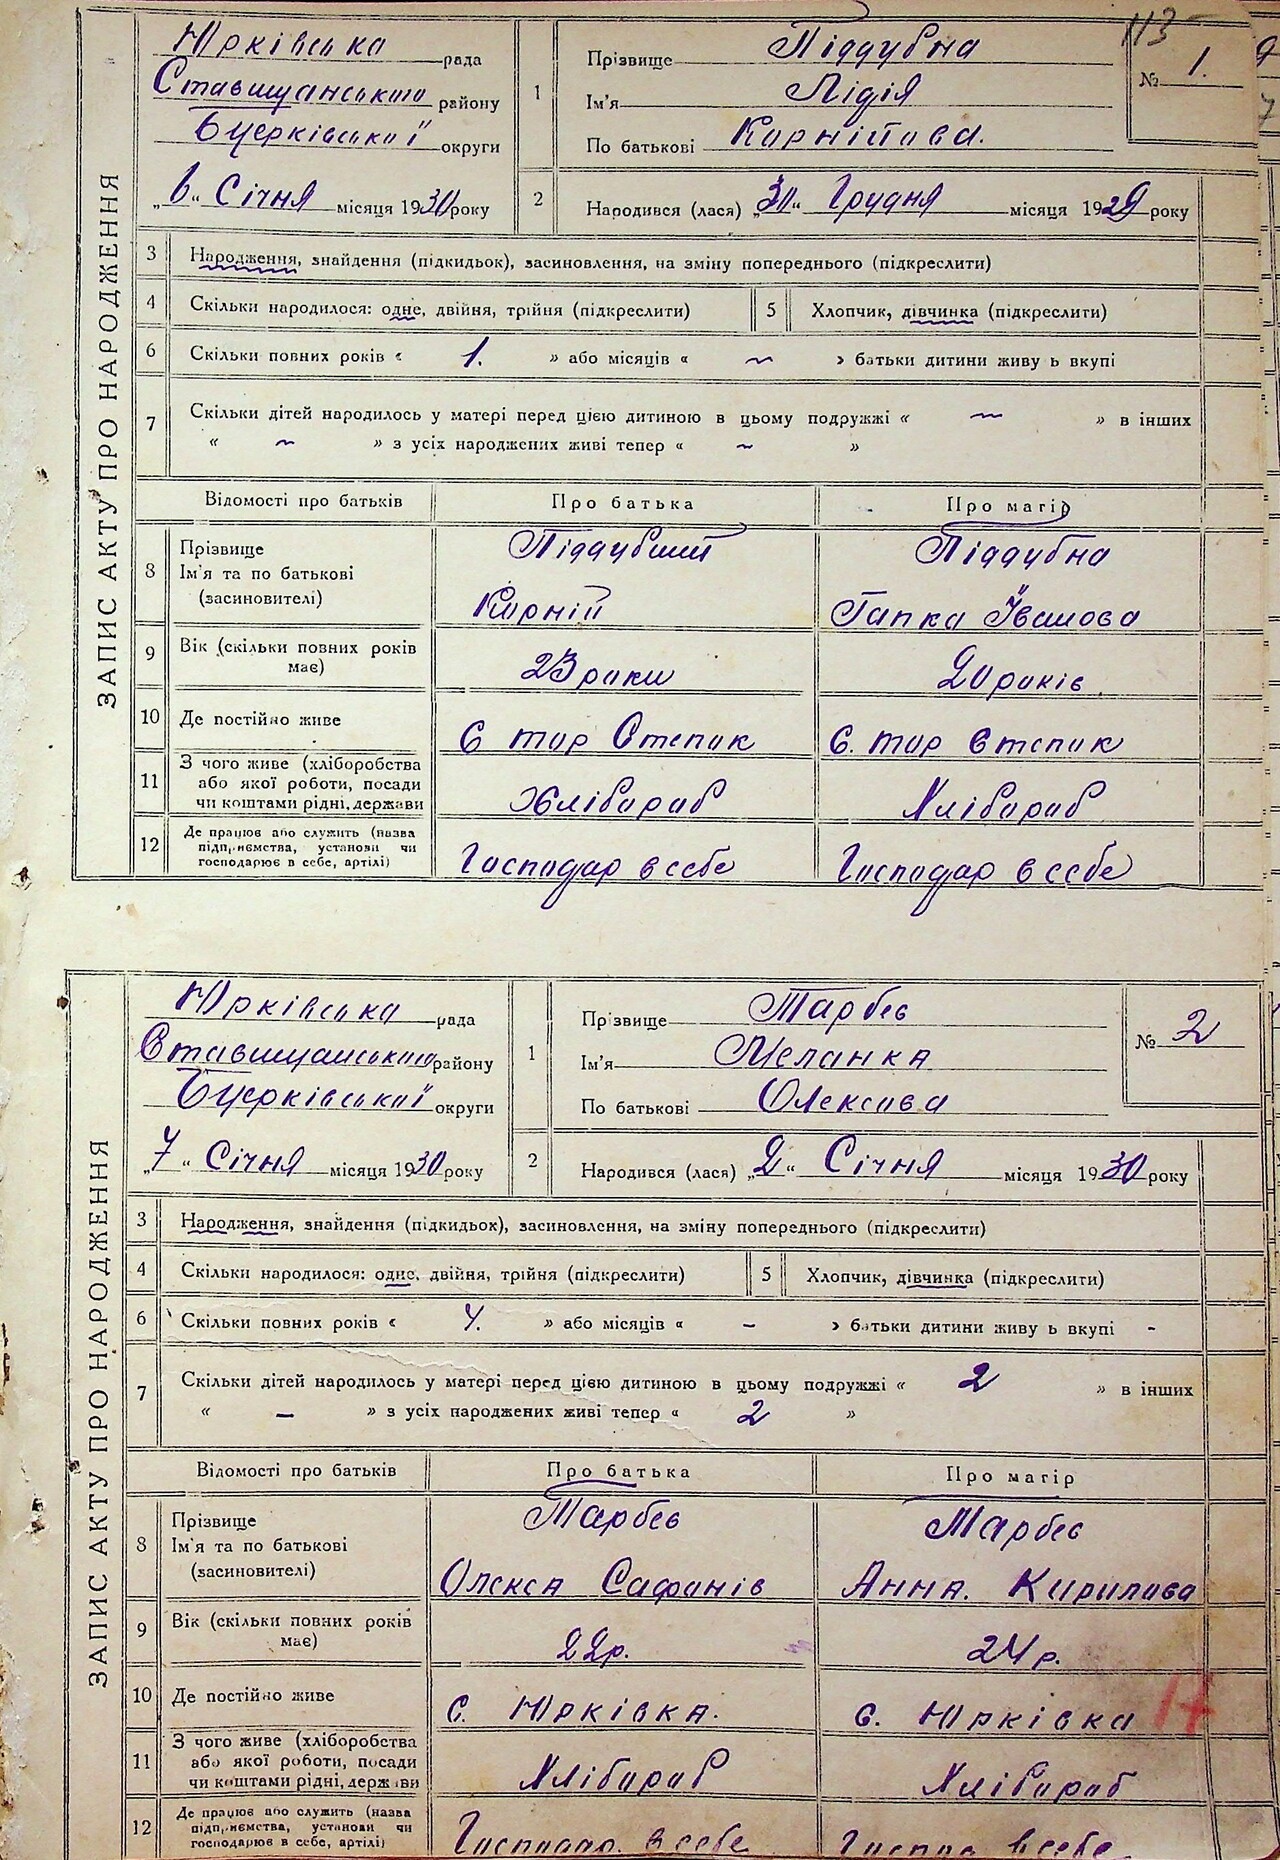 113
ЗАПИС АКТУ ПРО НАРОДЖЕННЯ
Юрківська рада
Ставищанського району
Бцерківської округи
„6“ Січня місяця 1930 року
1
Прізвище Піддубна
Ім'я Лідія
По батькові Корнійова.
№ 1.
2 Народився (лася) „30“ Грудня місяця 1929 року
3 Народження, знайдення (підкидьок), засиновлення, на зміну попереднього (підкреслити)
4 Скільки народилося: одне, двійня, трійня (підкреслити)
5 Хлопчик, дівчинка (підкреслити)
6 Скільки повних років « 1. » або місяців « ~ » батьки дитини живу ь вкупі
7 Скільки дітей народилось у матері перед цією дитиною в цьому подружжі « ~ » в інших
« ~ » з усіх народжених живі тепер « ~ »
Відомості про батьків Про батька Про матір
8 Прізвище Піддубний Піддубна
Ім'я та по батькові
(засиновителі) Корній Гапка Івано​ва
9 Вік (скільки повних років
має) 23 роки 20 років.
10 Де постійно живе
С тор Степок С. тор Степок
11 З чого живе (хліборобства
або якої роботи, посади
чи коштами рідні, держави Хлібороб Хлібороб
12 Де працює або служить (назва
підприємства, установи чи
господарює в себе, артілі) Господар в себе Господар в себе
ЗАПИС АКТУ ПРО НАРОДЖЕННЯ
Юрківська рада
Ставищанського району
Бцерківської округи
„7“ Січня місяця 1930 року
1
Прізвище Тарбєв
Ім'я Меланка
По батькові Олексова
№ 2
2 Народився (лася) „2“ Січня місяця 1930 року
3 Народження, знайдення (підкидьок), засиновлення, на зміну попереднього (підкреслити)
4 Скільки народилося: одне, двійня, трійня (підкреслити)
5 Хлопчик, дівчинка (підкреслити)
6 Скільки повних років « 4. » або місяців « - » батьки дитини живу ь вкупі -
7 Скільки дітей народилось у матері перед цією дитиною в цьому подружжі « 2 » в інших
« - » з усіх народжених живі тепер « 2 »
Відомості про батьків Про батька Про матір
8 Прізвище Тарбєв Тарбєв
Ім'я та по батькові
(засиновителі) Олекса Сафонів Анна. Кирилова
9 Вік (скільки повних років
має) 22р. 24р.
10 Де постійно живе
С. Юрківка. С. Юрківка
17
11 З чого живе (хліборобства
або якої роботи, посади
чи коштами рідні, держави Хлібороб Хлібороб
12 Де працює або служить (назва
підприємства, установи чи
господарює в себе, артілі) Господар. в себе Господ в себе